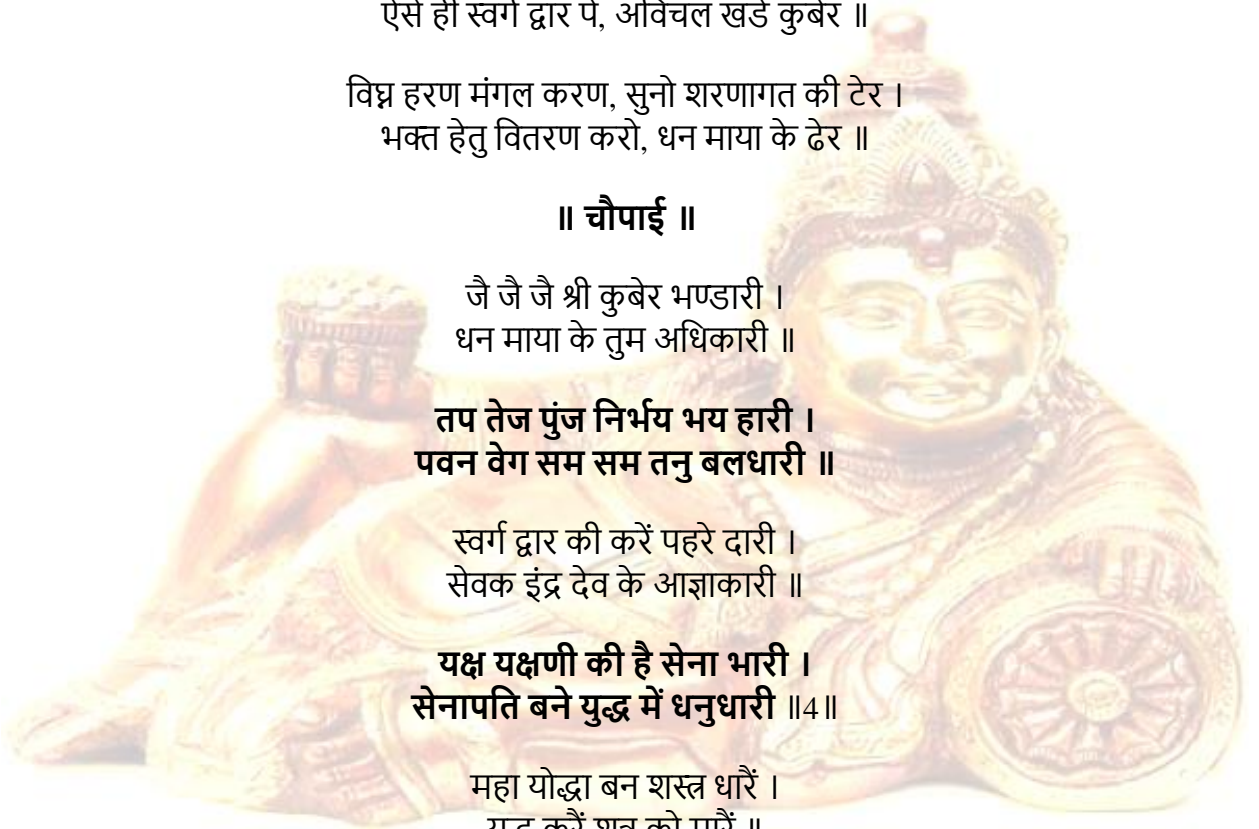 ऐसे ही स्वर्ग द्वार पे, अविचल खडे कुबेर ॥
विघ्न हरण मंगल करण, सुनो शरणागत की टेर ।
भक्त हेतु वितरण करो, धन माया के ढेर ॥
॥ चौपाई ॥
जै जै जै श्री कुबेर भण्डारी ।
धन माया के तुम अधिकारी ॥
तप तेज पुंज निर्भय भय हारी ।
पवन वेग सम सम तनु बलधारी ॥
स्वर्ग द्वार की करें पहरे दारी ।
सेवक इंद्र देव के आज्ञाकारी ॥
यक्ष यक्षणी की है सेना भारी ।
सेनापति बने युद्ध में धनुधारी ॥4॥
महा योद्धा बन शस्त्र धारैं ।
युद्ध करैं शत्रु को मारैं ॥